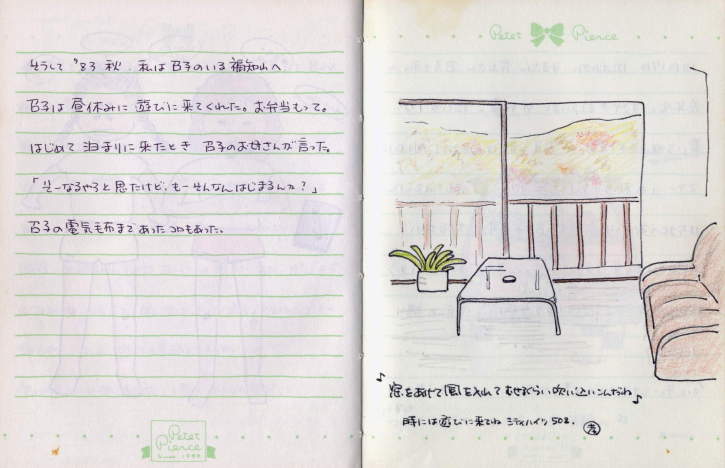 そうして '83 秋 私はB子のいる福知山へ
B子は昼休みに遊びに来てくれた。お弁当もって。
はじめて泊まりに来たとき B子のお母さんが言った。
「そーなるやろと思たけど、もーそんなんはじまるんか?」
B子の電気毛布まであったコロもあった。
Peter Pierce
Since
Peter Pierce
窓をあけて風を入れて むせるくらい吸い込いこんだわ
時には遊びに来てね シティハイツ502.